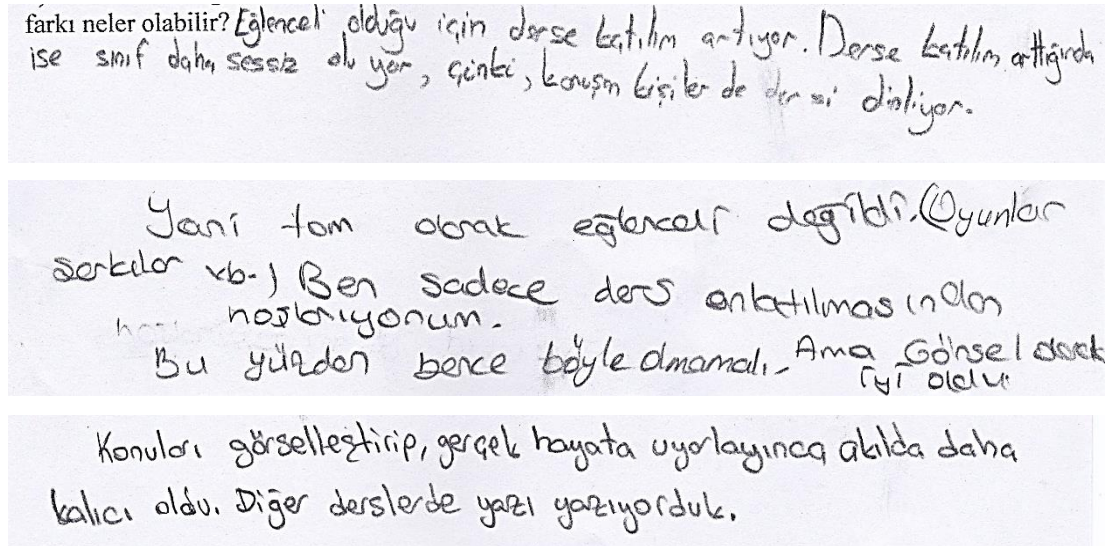 farkı neler olabilir? Eğlenceli olduğu için derse katılım artıyor. Derse katılım arttığında
ise sınıf daha sessiz oluyor, çünkü, konuşn kişiler de dersi dinliyor.
Yani tam olarak eğlenceli değildi. (Oyunlar
şarkılar vb.) Ben sadece ders anlatılmasından
hoşlanıyorum.
Bu yüzden bence böyle olmamalı. Ama Görsel olarak
iyi oldu
Konuları görselleştirip, gerçek hayata uyarlayınca akılda daha
kalıcı oldu. Diğer derslerde yazı yazıyorduk.